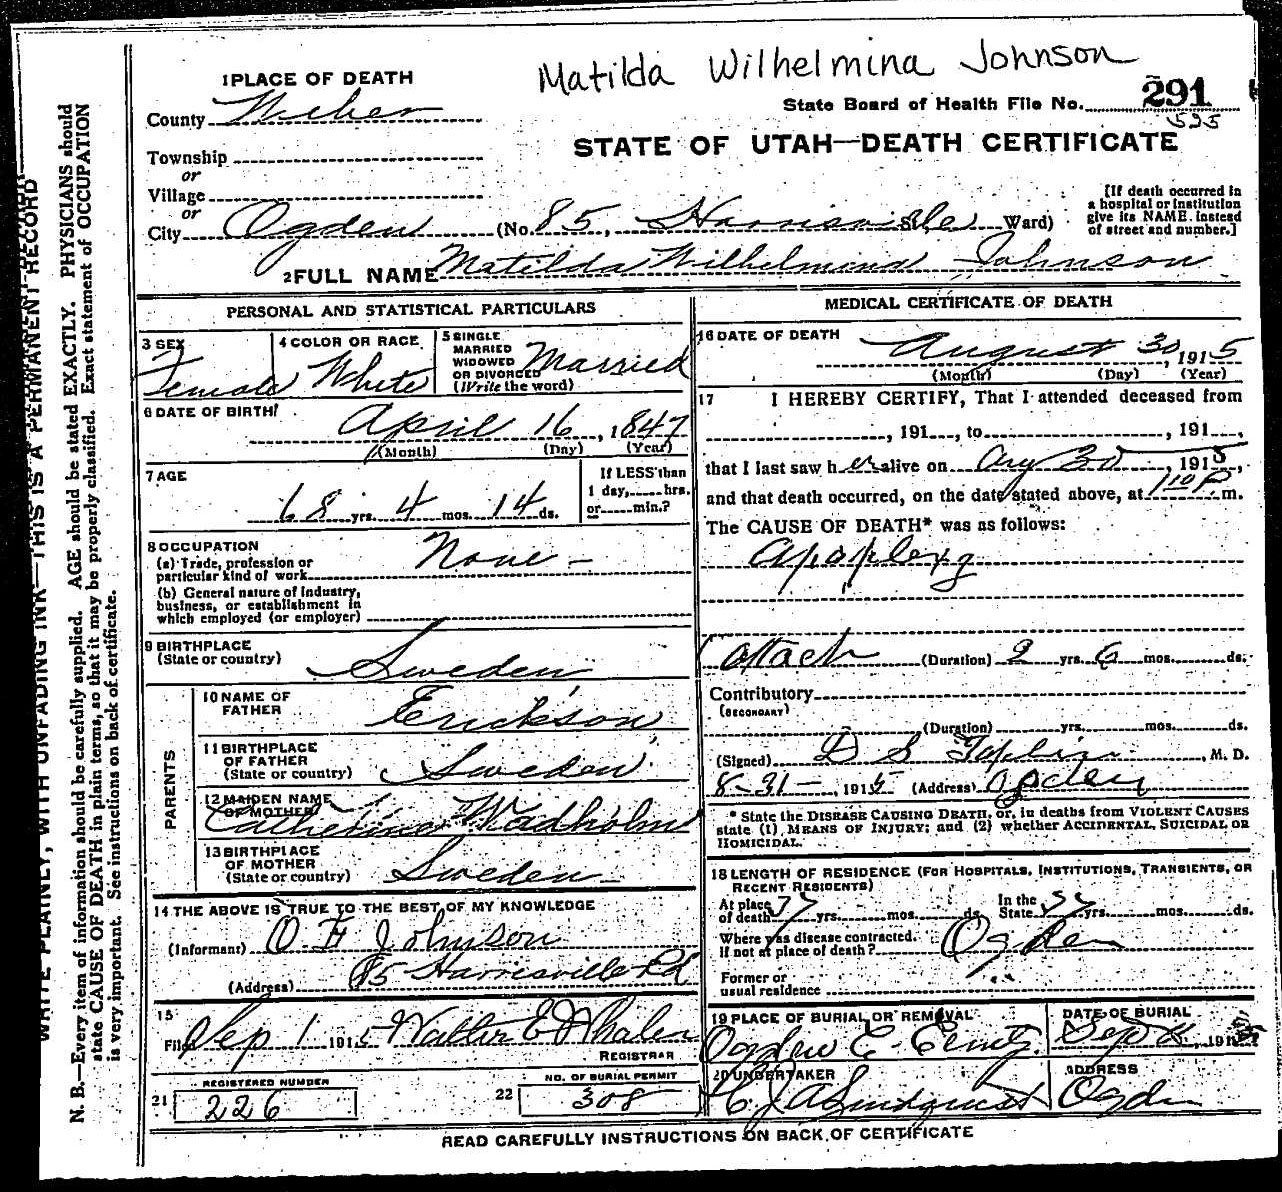 Matilda Wilhelmina Johnson
1 PLACE OF DEATH
State Board of Health File No. 291
525
County Weber
STATE OF UTAH—DEATH CERTIFICATE
Township
or
Village
or
City Ogden (No. 85, Harrisville Ward)
[If death occurred in
a hospital or institution
give its NAME. instead
of street and number.]
2 FULL NAME Matilda Wilhelmina Johnson
PERSONAL AND STATISTICAL PARTICULARS
3 SEX
Female
4 COLOR OR RACE
White
5 SINGLE
MARRIED
WIDOWED
OR DIVORCED
(Write the word)
Married
6 DATE OF BIRTH
April 16, 1847
(Month) (Day) (Year)
7 AGE
68 yrs. 4 mos. 14 ds.
If LESS than
1 day, hrs.
or min.?
8 OCCUPATION
(a) Trade, profession or
particular kind of work
None -
(b) General nature of industry,
business, or establishment in
which employed (or employer)
9 BIRTHPLACE
(State or country)
Sweden
PARENTS
10 NAME OF
FATHER
Erickson
11 BIRTHPLACE
OF FATHER
(State or country)
Sweden
12 MAIDEN NAME
OF MOTHER
Catherine Wadholm
13 BIRTHPLACE
OF MOTHER
(State or country)
Sweden
14 THE ABOVE IS TRUE TO THE BEST OF MY KNOWLEDGE
(Informant) O F Johnson
(Address) 85 Harrisville Rd
15
Filed Sep 1 1915 Walter E Whalen
REGISTRAR
REGISTERED NUMBER
21 226
NO. OF BURIAL PERMIT
22 308
MEDICAL CERTIFICATE OF DEATH
16 DATE OF DEATH
August 30, 1915
(Month) (Day) (Year)
17 I HEREBY CERTIFY, That I attended deceased from
, 191 , to , 191 ,
that I last saw her alive on Aug 30, 1915,
and that death occurred, on the date stated above, at 1 10 P m.
The CAUSE OF DEATH* was as follows:
Apoplexy
attack (Duration) 2 yrs. 6 mos. ds.
Contributory
(SECONDARY)
(Duration) yrs. mos. ds.
(Signed) D S , M. D.
8-31-, 1915 (Address) Ogden
* State the DISEASE CAUSING DEATH, or, in deaths from VIOLENT CAUSES
state (1) MEANS OF INJURY; and (2) whether ACCIDENTAL, SUICIDAL OR
HOMICIDAL.
18 LENGTH OF RESIDENCE (FOR HOSPITALS, INSTITUTIONS, TRANSIENTS, OR
RECENT RESIDENTS)
At place
of death yrs. mos. ds.
In the
State yrs. mos. ds.
Where was disease contracted.
If not at place of death? Ogden
Former or
usual residence
19 PLACE OF BURIAL OR REMOVAL
Ogden C Cemty.
DATE OF BURIAL
Sep , 191
20 UNDERTAKER
C J A Lindquist
ADDRESS
Ogden
READ CAREFULLY INSTRUCTIONS ON BACK OF CERTIFICATE
WRITE PLAINLY, WITH UNFADING INK—THIS IS A PERMANENT RECORD
N. B.—Every item of information should be carefully supplied. AGE should be stated EXACTLY. PHYSICIANS should
state CAUSE OF DEATH in plain terms, so that it may be properly classified. Exact statement of OCCUPATION
is very important. See instructions on back of certificate.